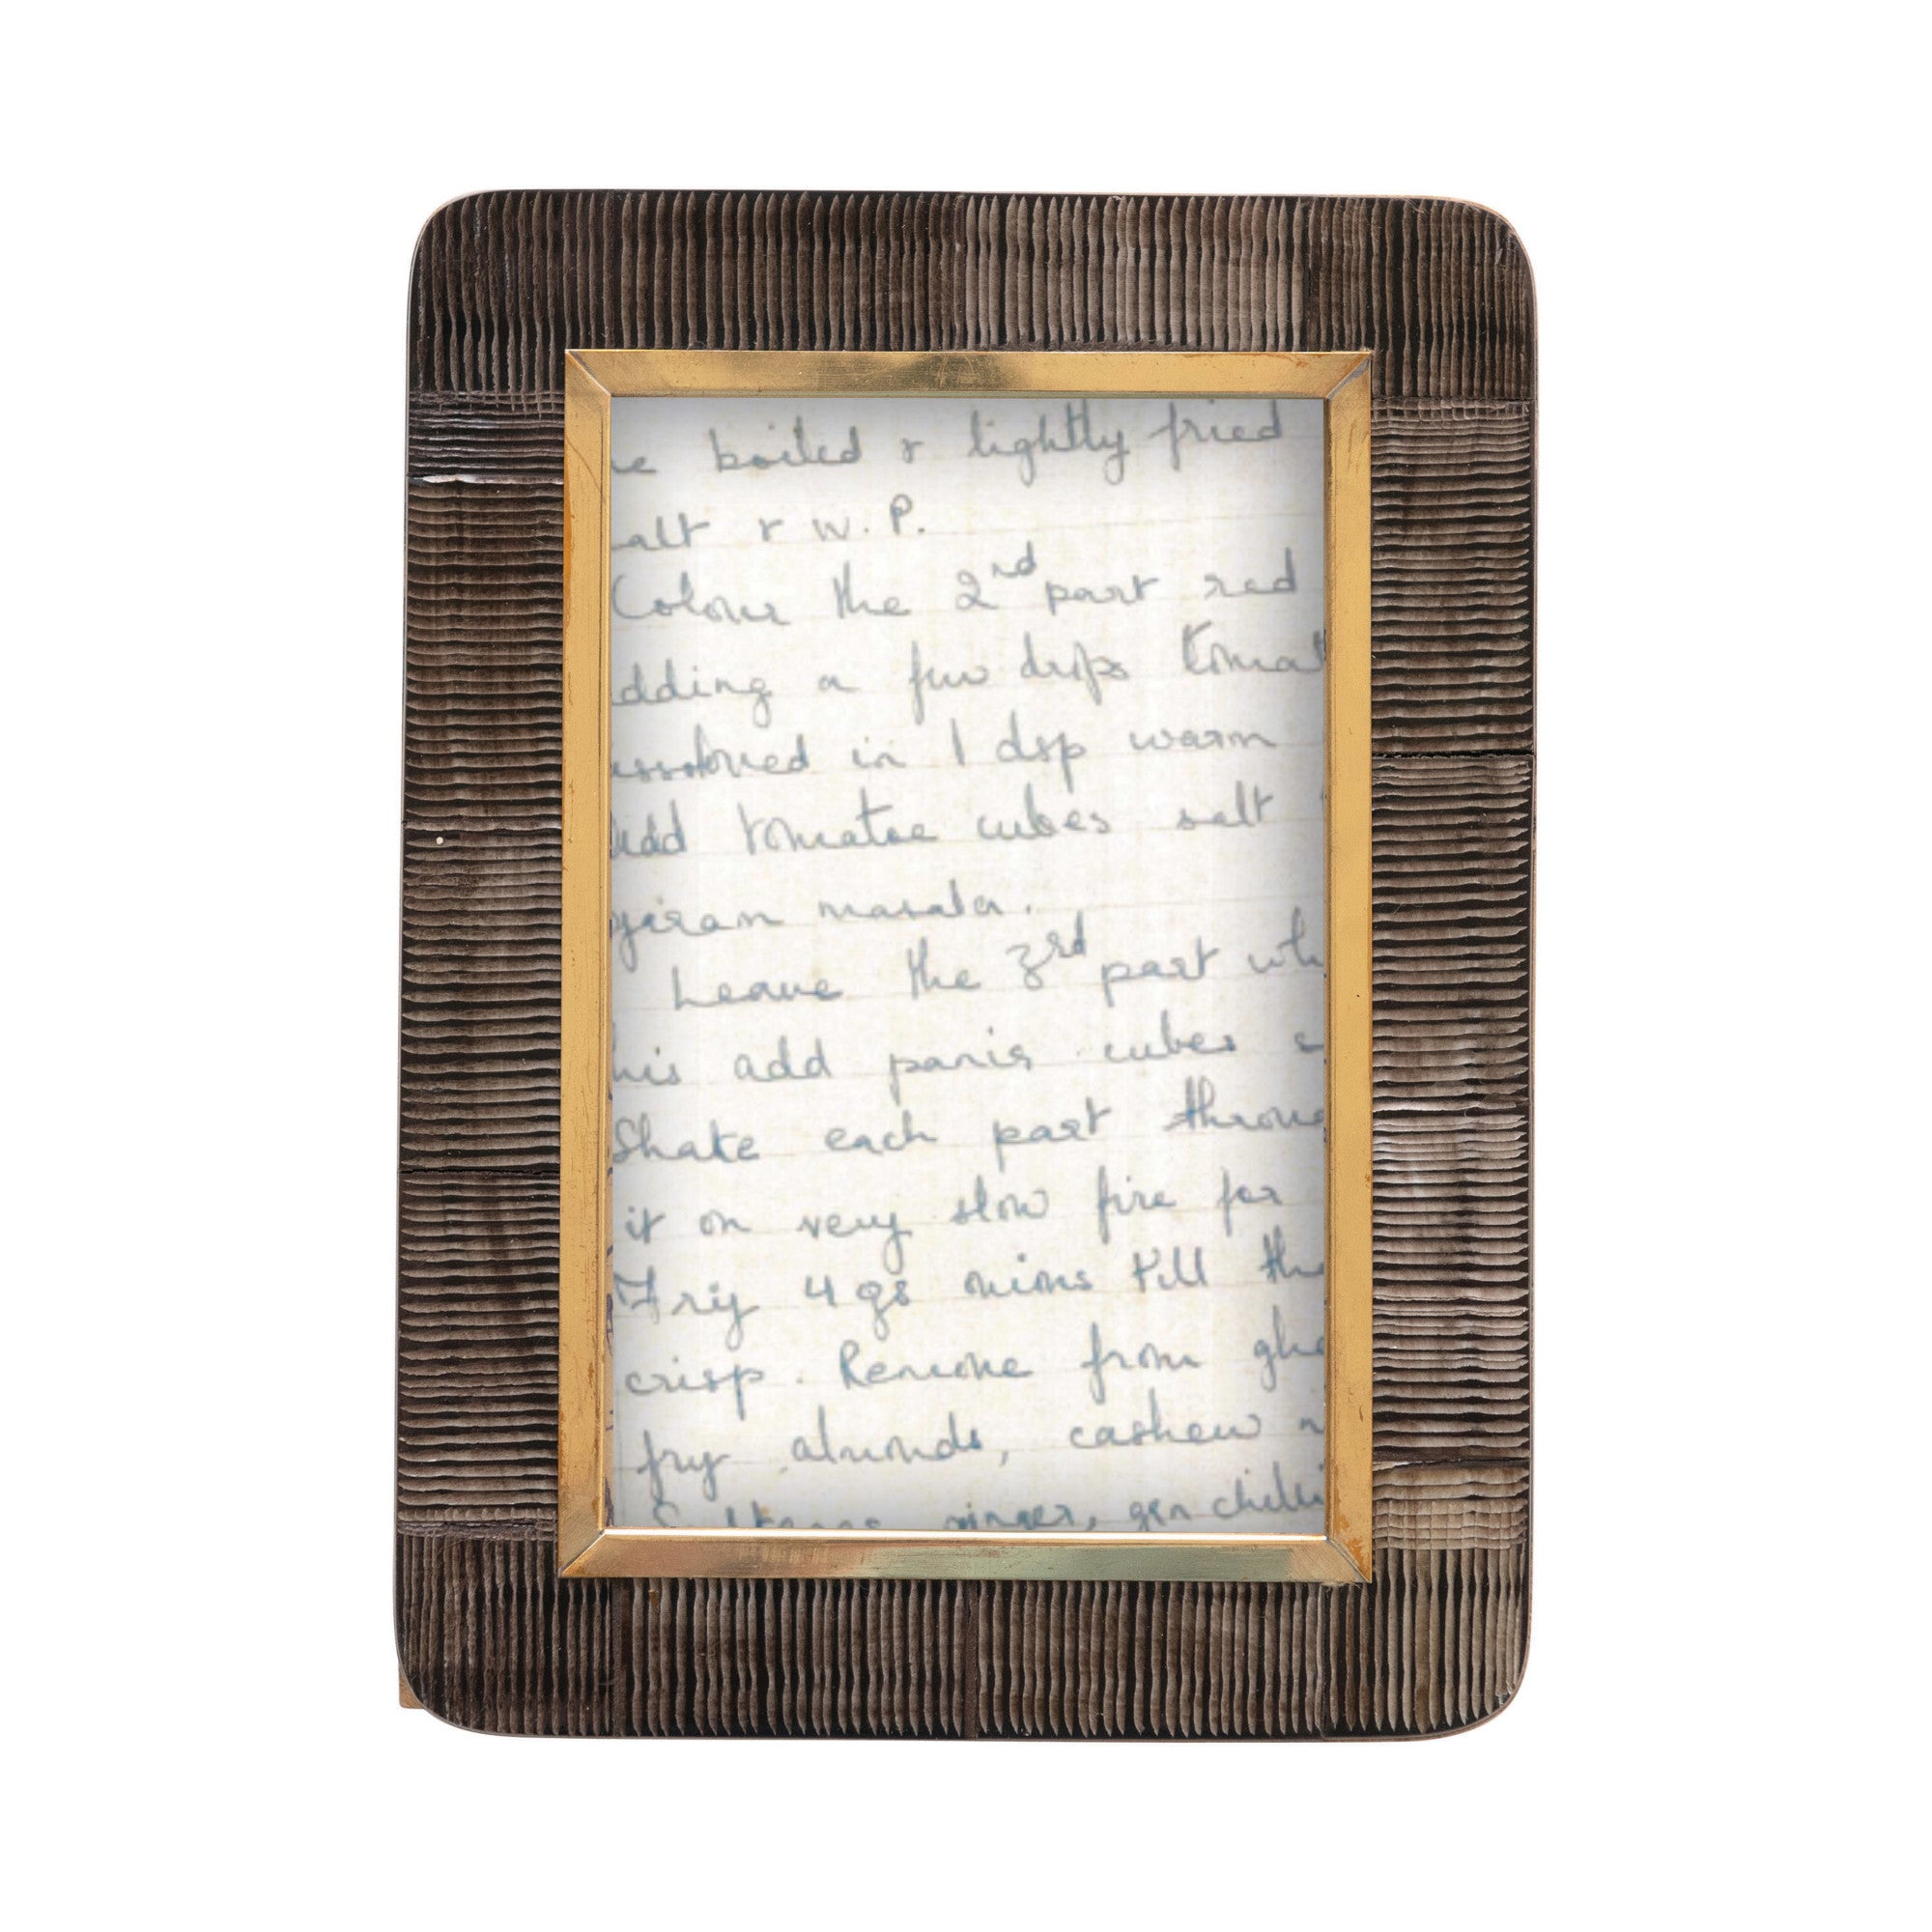 boiled & lightly fried
& W.P.
Colour the 2nd part red
a few drops
in 1 dsp warm
add tomatoe cubes salt
garam masala.
Leave the 3rd part
add panir cubes
Shake each part
it on very slow fire for
Fry 4 gs onions till
crisp. Remove from
fry almonds, cashew
ginger, grn chilli